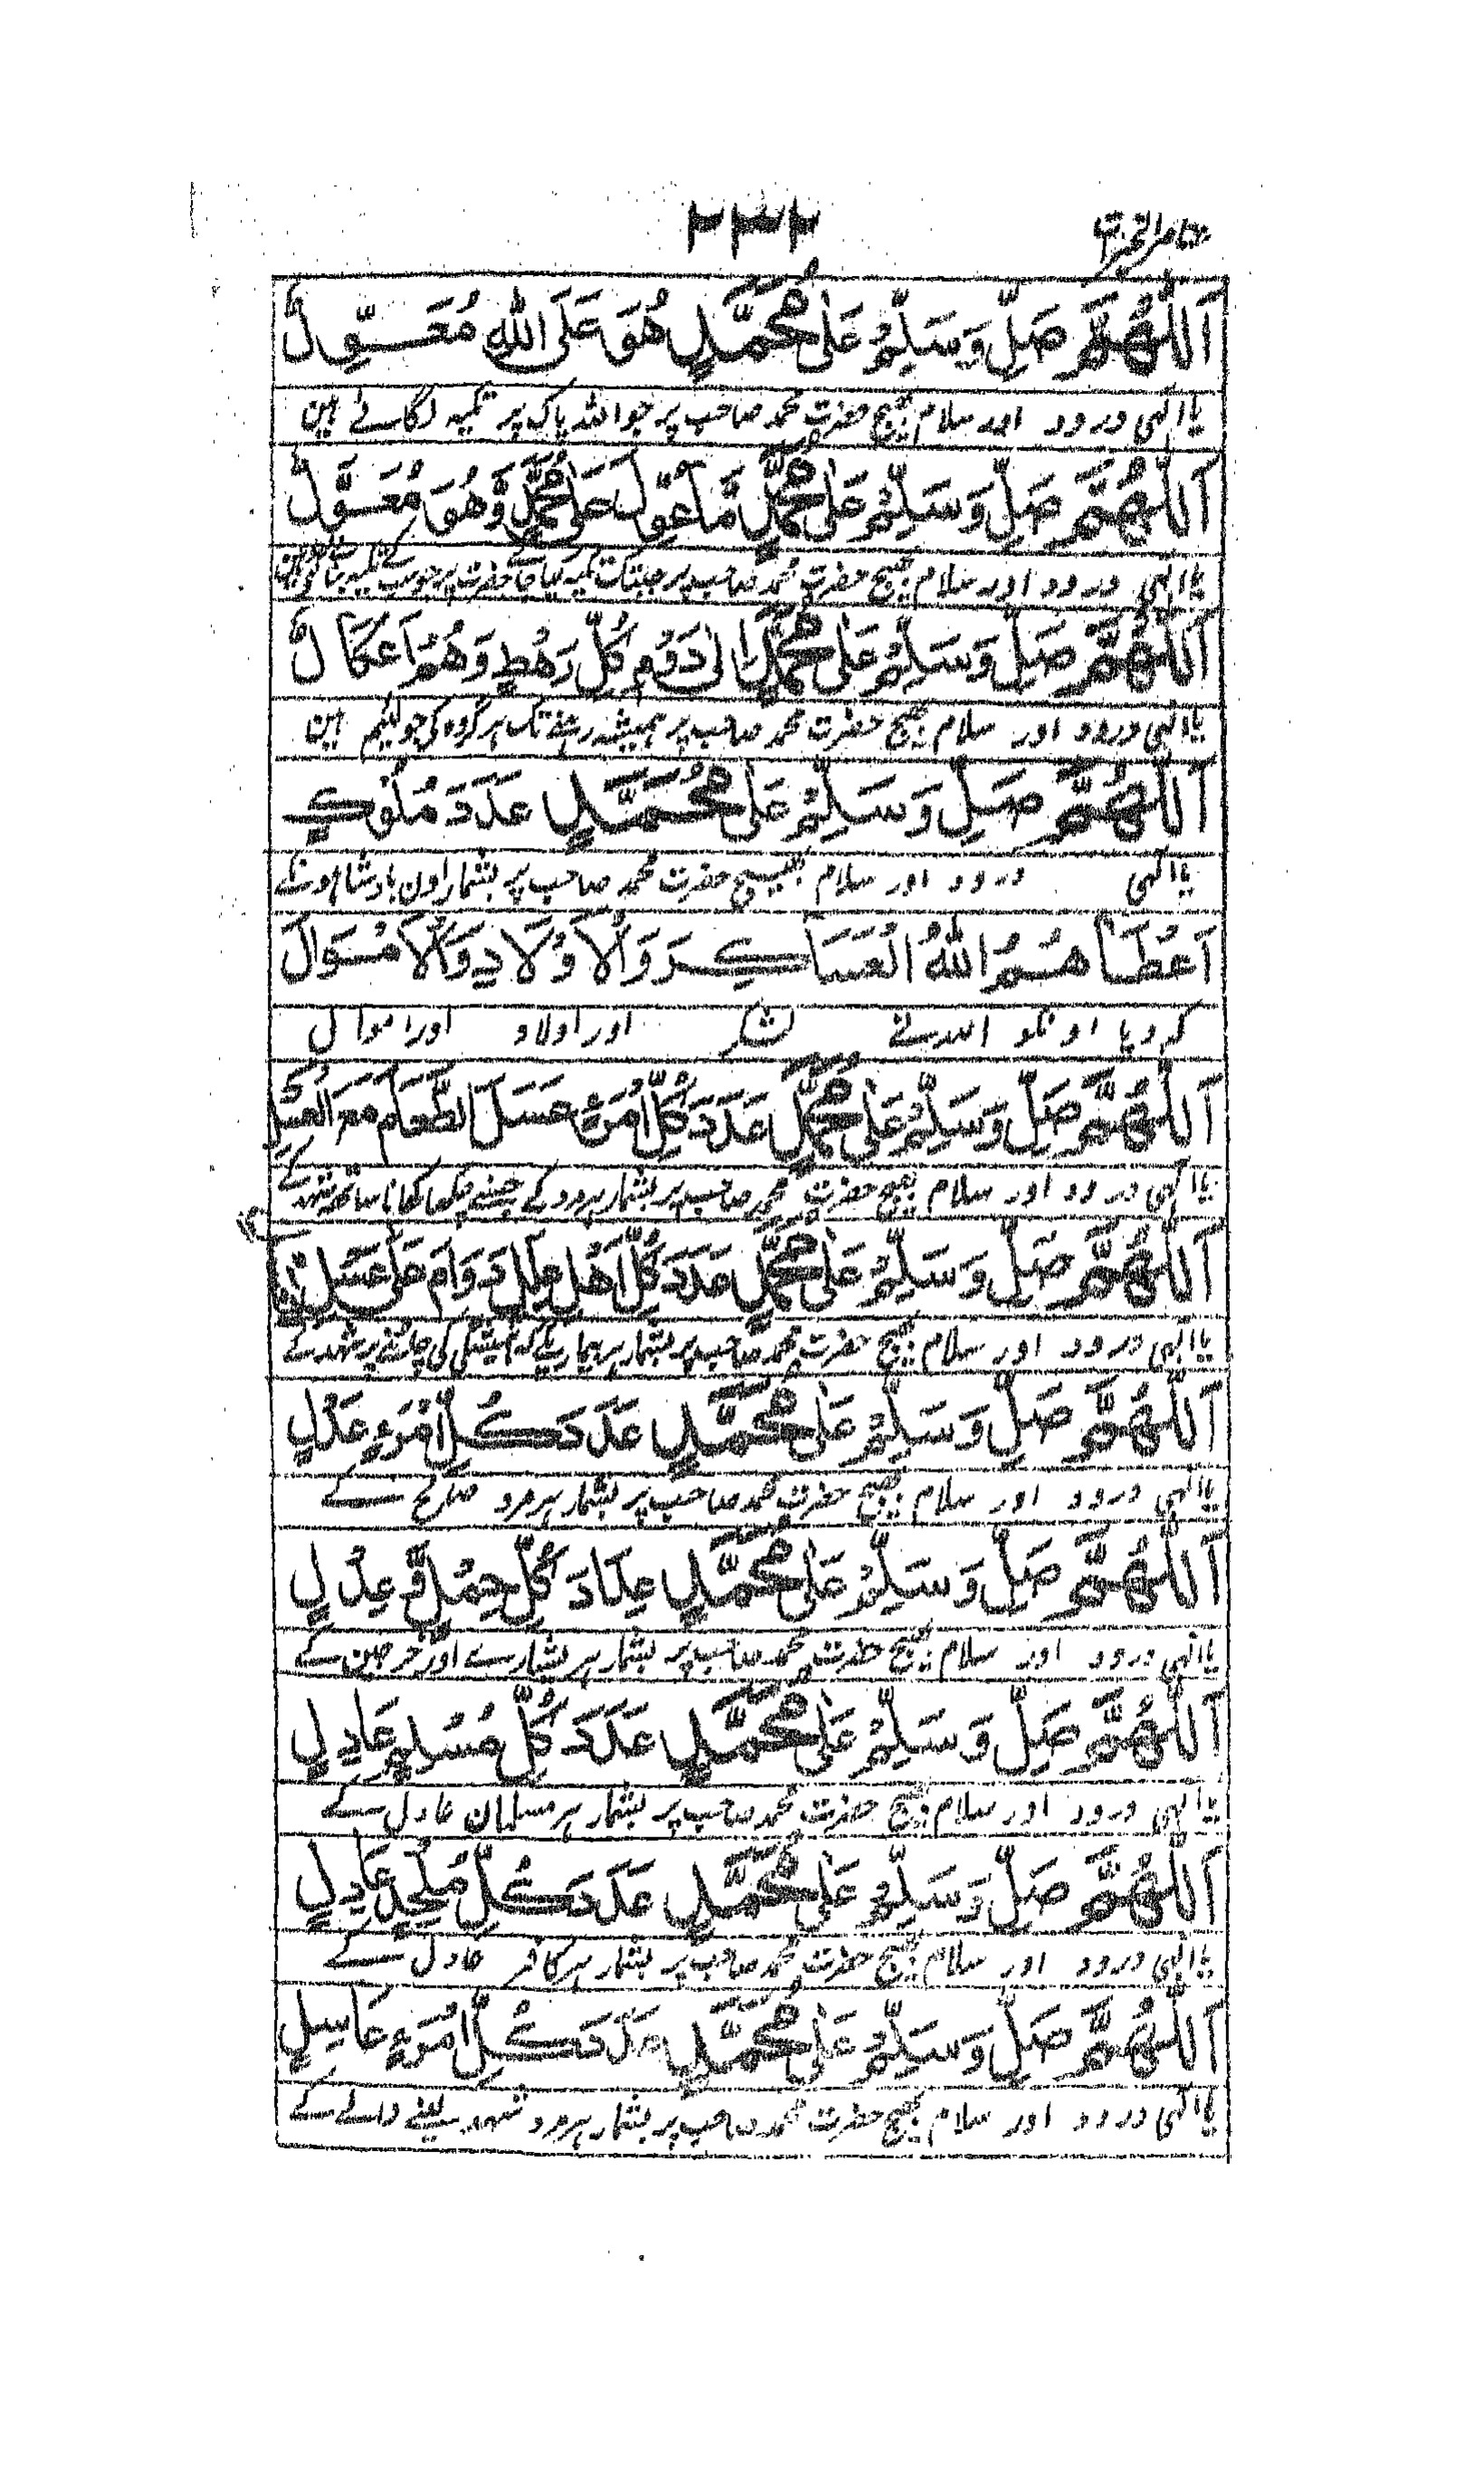 ۲۳۲
اَللّٰهُمَّ صَلِّ وَسَلِّمْ عَلٰى مُحَمَّدٍ هُوَ عَلَى اللّٰهِ مُعَوِّلٌ
یا الٰہی درود اور سلام بھیج حضرت محمد صاحب پر جو اللہ پاک پر تکیہ لگائے ہین
اَللّٰهُمَّ صَلِّ وَسَلِّمْ عَلٰى مُحَمَّدٍ مَّا عُوِّلَ عَلٰى مُحَمَّدٍ وَّهُوَ مُعَوَّلٌ
یا الٰہی درود اور سلام بھیج حضرت محمد صاحب پر جبتک تکیہ کیا جائے حضرت پر جو سب کے تکیہ
اَللّٰهُمَّ صَلِّ وَسَلِّمْ عَلٰى مُحَمَّدٍ اِلٰى دَوْمِ كُلِّ رَهْطٍ وَهُمْ اَعْكَالٌ
یا الٰہی درود اور سلام بھیج حضرت محمد صاحب پر ہمیشہ رہنے تک ہر گروہ کی جو لئیم ہین
اَللّٰهُمَّ صَلِّ وَسَلِّمْ عَلٰى مُحَمَّدٍ عَدَدَ مُلُوْكٍ
یا الٰہی درود اور سلام بھیج حضرت محمد صاحب پر بشمار اون بادشاہونکے
اَعْطَاهُمُ اللّٰهُ الْعَسَاكِرَ وَالْاَوْلَادِ وَالْاَمْوَالَ
کہ دیا اونکو اللہ نے لشکر اور اولاد اور اموال
اَللّٰهُمَّ صَلِّ وَسَلِّمْ عَلٰى مُحَمَّدٍ عَدَدَ كُلِّ امْرَءٍ عَسَلَ الطَّعَامَ مَعَ الْعَسَلِ
یا الٰہی درود اور سلام بھیج حضرت محمد صاحب پر بشمار ہر مرد کے جسنے چکھا کھانا ساتھ شہد کے
اَللّٰهُمَّ صَلِّ وَسَلِّمْ عَلٰى مُحَمَّدٍ عَدَدَ كُلِّ اَهْلِ عِلَلٍ دَوَام عَلٰى عَسَلٍ
یا الٰہی درود اور سلام بھیج حضرت محمد صاحب پر بشمار ہر بیمار کے کہ ہمیشگی کی چاٹنے پر شہد کے
اَللّٰهُمَّ صَلِّ وَسَلِّمْ عَلٰى مُحَمَّدٍ عَدَدَ كُلِّ امْرَءٍ عَدْلٍ
یا الٰہی درود اور سلام بھیج حضرت محمد صاحب پر بشمار ہر مرد صالح کے
اَللّٰهُمَّ صَلِّ وَسَلِّمْ عَلٰى مُحَمَّدٍ عِدَادَ كُلِّ حِمْلٍ وَّ عِدْلٍ
یا الٰہی درود اور سلام بھیج حضرت محمد صاحب پر بشمار ہر پشتارے اور خرجین کے
اَللّٰهُمَّ صَلِّ وَسَلِّمْ عَلٰى مُحَمَّدٍ عَدَدَ كُلِّ مُسْلِمٍ عَادِلٍ
یا الٰہی درود اور سلام بھیج حضرت محمد صاحب پر بشمار ہر مسلمان عادل کے
اَللّٰهُمَّ صَلِّ وَسَلِّمْ عَلٰى مُحَمَّدٍ عَدَدَ كُلِّ مُلْحِدٍ عَادِلٍ
یا الٰہی درود اور سلام بھیج حضرت محمد صاحب پر بشمار ہر کافر عادل کے
اَللّٰهُمَّ صَلِّ وَسَلِّمْ عَلٰى مُحَمَّدٍ عَدَدَ كُلِّ امْرَءٍ عَاسِلٍ
یا الٰہی درود اور سلام بھیج حضرت محمد صاحب پر بشمار ہر مرد شہد لینے والے کے